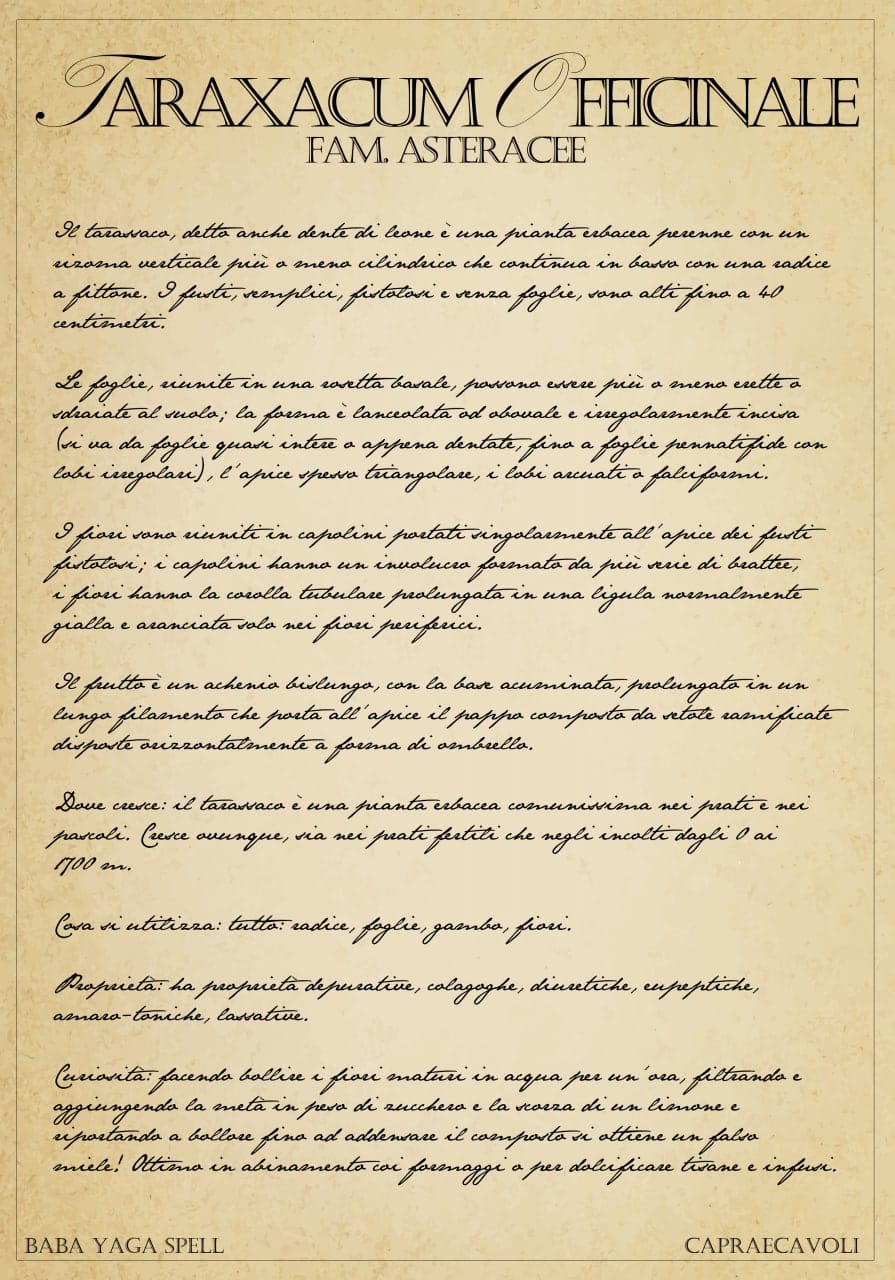 Taraxacum Officinale
Fam. Asteracee
Il tarassaco, detto anche dente di leone è una pianta erbacea perenne con un
rizoma verticale più o meno cilindrico che continua in basso con una radice
a fittone. I fusti, semplici, fistolosi e senza foglie, sono alti fino a 40
centimetri.
Le foglie, riunite in una rosetta basale, possono essere più o meno erette o
sdraiate al suolo; la forma è lanceolata od obovale e irregolarmente incisa
(si va da foglie quasi intere o appena dentate, fino a foglie pennatifide con
lobi irregolari), l'apice spesso triangolare, i lobi arcuati o falciformi.
I fiori sono riuniti in capolini portati singolarmente all'apice dei fusti
fistolosi; i capolini hanno un involucro formato da più serie di brattee,
i fiori hanno la corolla tubulare prolungata in una ligula normalmente
gialla e aranciata solo nei fiori periferici.
Il frutto è un achenio bislungo, con la base acuminata, prolungato in un
lungo filamento che porta all'apice il pappo composto da setole ramificate
disposte orizzontalmente a forma di ombrello.
Dove cresce: il tarassaco è una pianta erbacea comunissima nei prati e nei
pascoli. Cresce ovunque, sia nei prati fertili che negli incolti dagli 0 ai
1700 m.
Cosa si utilizza: tutto: radice, foglie, gambo, fiori.
Proprietà: ha proprietà depurative, colagoghe, diuretiche, eupeptiche,
amaro-toniche, lassative.
Curiosità: facendo bollire i fiori maturi in acqua per un'ora, filtrando e
aggiungendo la metà in peso di zucchero e la scorza di un limone e
riportando a bollore fino ad addensare il composto si ottiene un falso
miele! Ottimo in abinamento coi formaggi o per dolcificare tisane e infusi.
Baba Yaga Spell
Capraecavoli